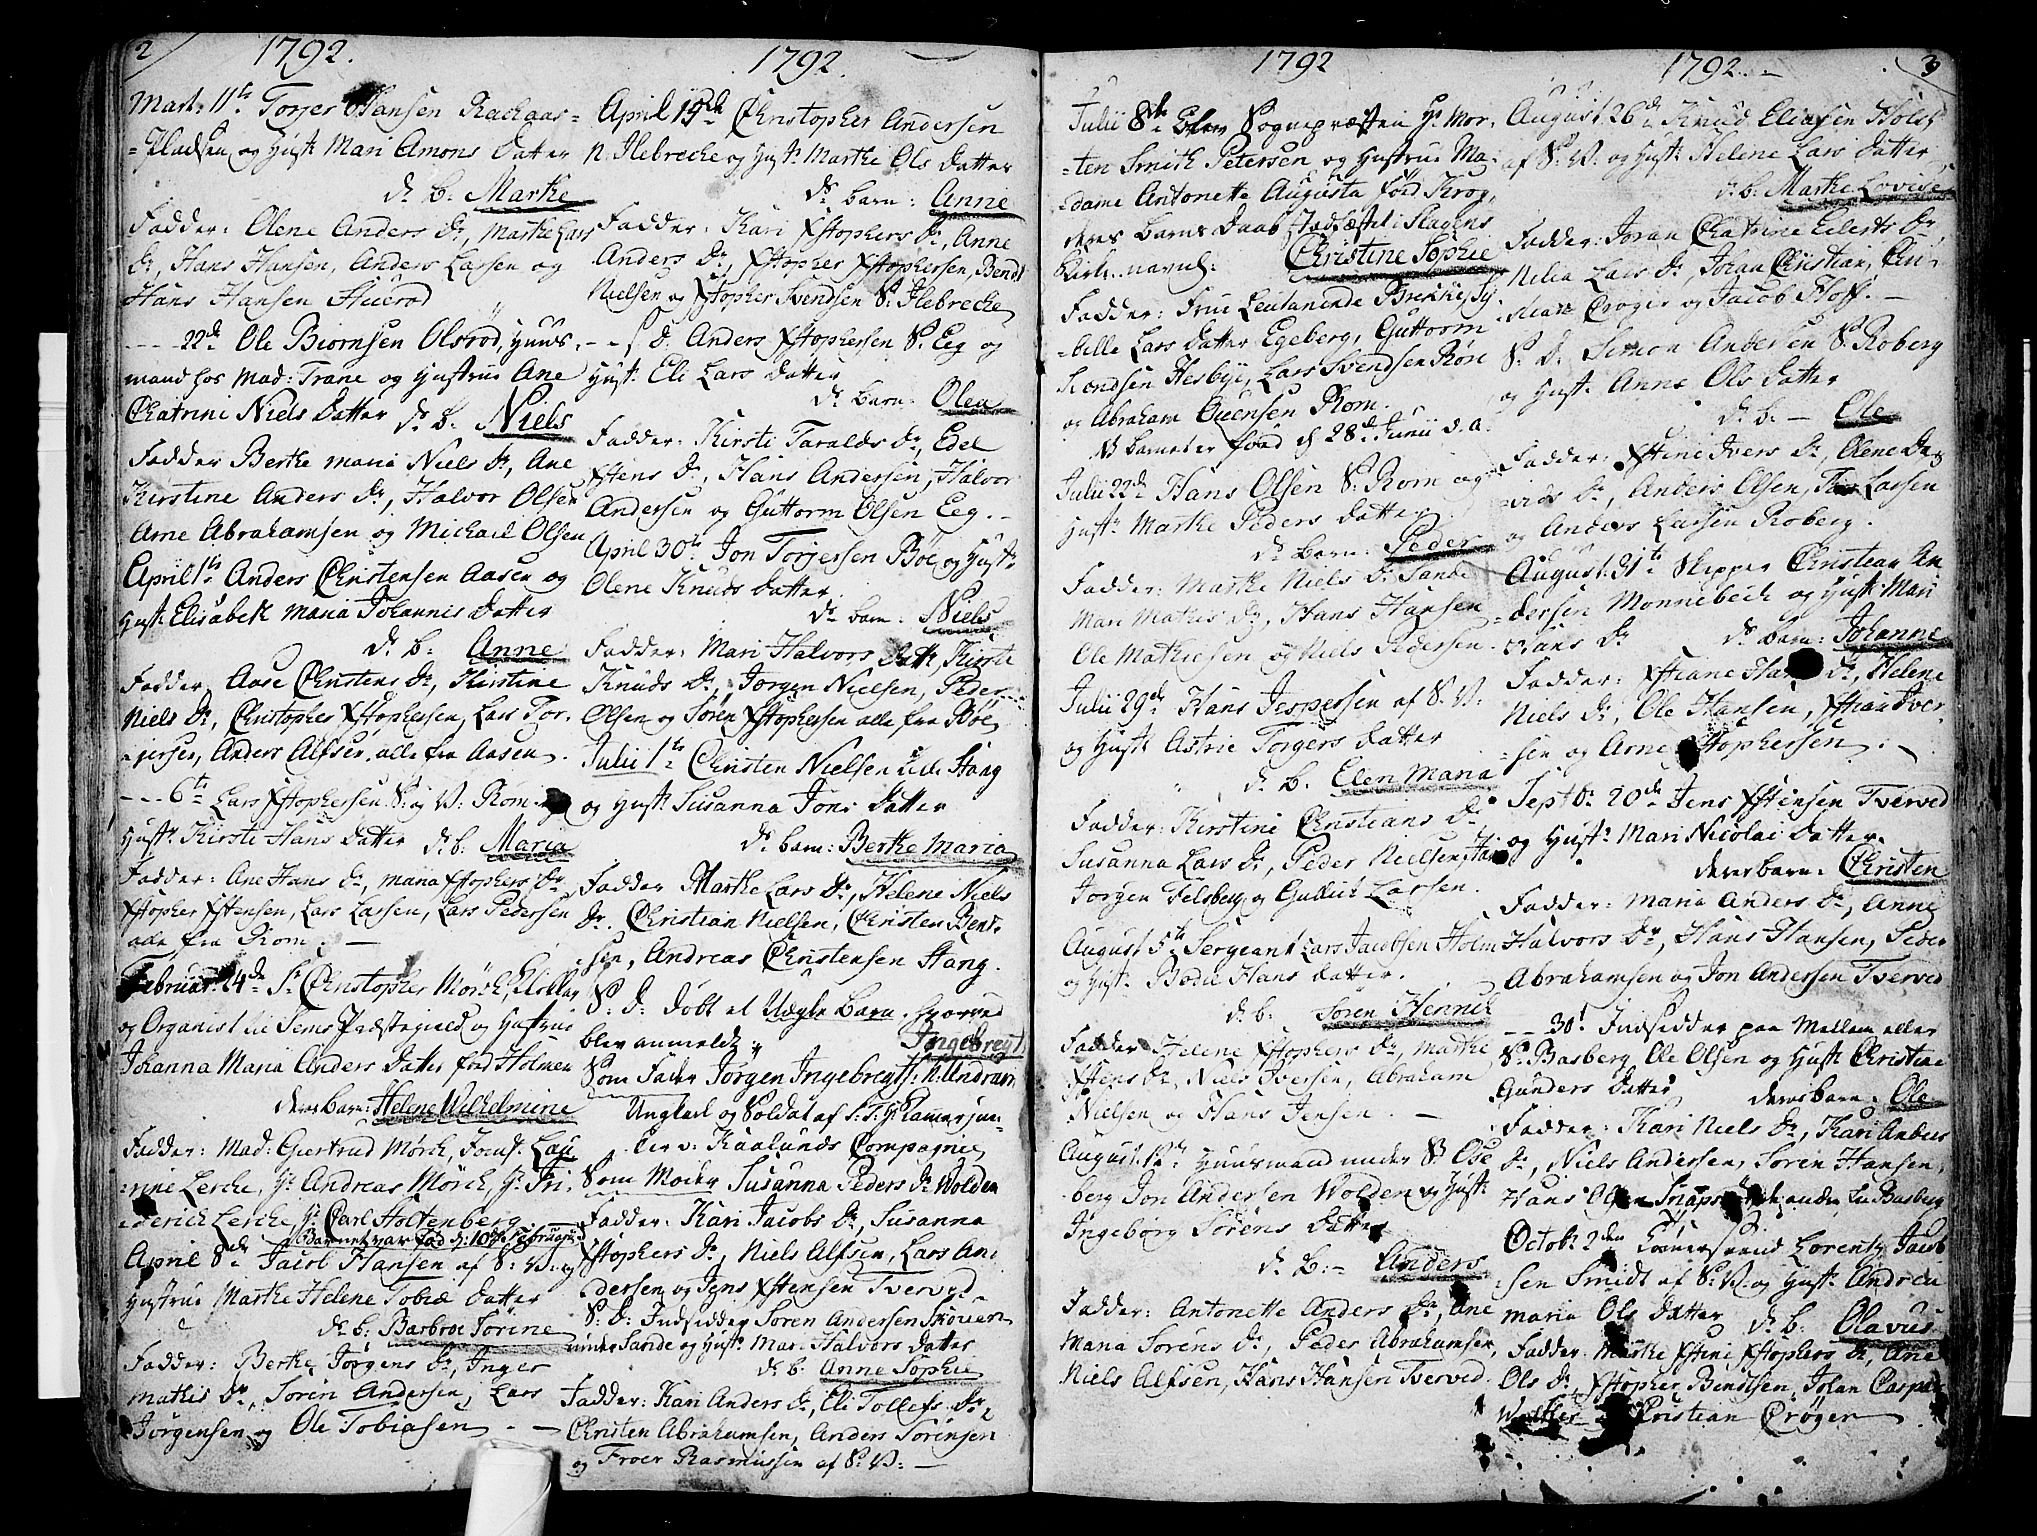 2
1792.
Mart: 11te Torjer Hansen Rachaas=
=Pladsen og Hust: Mari Amons Datter
ds b: Marthe
Fadder: Olene Anders Dr, Marthe Lars
Dr, Hans Hansen, Anders Larsen og
Hans Hansen
--- 22de Ole Biørnsen Olsrød, Huus-
mand hos Mad: Trane og Hustrue Ane
Chatrine Niels Datter ds b: Niels
Fadder Berthe Maria Niels Dr, Ane
Kirstine Anders Dr, Halvor Olsen
Arne Abrahamsen og Michael Olsen
April 1te Anders Christensen Aasen og
Hust: Elisabeth Maria Johannis Datter
ds b: Anne
Fadder, Aase Christens Dr, Kirstine
Niels Dr, Christopher Xstophersen, Lars Tor-
gersen, Anders Alfsen, alle fra Aasen.
--- 6te Lars Xstophersen S: og V: Rom og
Hust: Kirsti Hans Datter ds b: Maria
Fadder: Ane Hans Dr, Maria Xstophers Dr
Xstopher Xstensen, Lars Larsen, Lars Pedersen
alle fra Rom. —
Februar: 24de Sr Christopher Mørch, Klokker
og Organist til Sems Præstegield og Hustrue
Johanna Maria Anders Datter fød Holmen
deres Barn: Helene Wilhelmine
Fadder: Mad: Giertrud Mørch, Jomf: Lau-
rine Lerche, Hr Andreas Mørch, Hr Fri-
derich Lerche, Hr Carl Holtenberg
Barnet var fød d: 10de Februar
April 8de Jacob Hansen af S: V: og
Hustrue Marthe Helene Tobiæ Datter
ds b: Barbroe Sørine
Fadder: Berthe Jørgens Dr, Inger
Mathis Dr, Sørin Andersen, Lars
Jørgensen og Ole Tobiasen — —
1792.
April 19de Christopher Andersen
N. Ilebreche og Hust: Marthe Ols Datter
ds Barn: Anne
Fadder: Kari Xstophers Dr, Anne
Anders Dr, Xstopher Xstophersen, Bendt
Nielsen og Xstopher Svendsen S: Ilebreche
-- S: D: Anders Xstophersen S: Eeg og
Hust: Eli Lars Datter
ds Barn: Olea
Fadder: Kirsti Taralds Dr, Edel
Xstens Dr, Hans Andersen, Halvor
Andersen og Guttorm Olsen Eeg. —
April 30te Jon Torjersen Bøe og Hust:
Olene Knuds Datter
ds Barn: Niels
Fadder: Mari Halvors Datt, Kirsti
Knuds Dr, Jørgen Nielsen, Peder
Olsen og Søren Xstophersen alle fra Bøe
Julii 1te Christen Nielsen Stang
og Hust: Susanna Jons Datter
ds Barn: Berthe Maria
Fadder Marthe Lars Dr, Helene Niels
Dr, Christian Nielsen, Christen Bent-
sen, Andreas Christensen Stang.
S: D: døbt et Uægte Barn. hvorved
blev anmeldt: Ingebregt
Som Fader Jørgen Ingebregts: N: Undrum
Ungkarl og Soldat af S: T: Hr Kamerjun-
ker v: Kaalunds Compagnie
Som Moder Susanna Peders Dr Wolden
Fadder: Kari Jacobs Dr, Susanna
Xstophers Dr, Niels Alfsen, Lars An-
dersen og Jens Xstensen Tverved
S: D: Indsidder Søren Andersen Skouen
under Sande og Hust: Mari Halvors Datter
ds b: Anne Sophie
Fadder: Kari Anders Dr, Eli Tollefs Dr,
Christen Abrahamsen, Anders Sørensen
og Froer Rasmussen af S: V: —
1792
Julii 8de blev Sognepræsten Hr Mor-
ten Smith Petersen og Hustrue Ma-
dame Antonette Augusta fød Krog,
deres Barns Daab stadfæstet i Slagens
Kirke. navnl: Christine Sophie
Fadder: Frue Leutenande Brekke, Sy-
bille Lars Datter Egeberg, Guttorm
Rondsen Hesbye, Lars Svendsen Røre
og Abraham Evensen Rom.
NB Barnet er fød d 28de Junii d. a.
Julii 22de Hans Olsen S: Rom og
Hust: Marthe Peders Datter
ds Barn: Peder
Fadder: Marthe Niels Dr Sande
Mari Mathis Dr, Hans Hansen
Ole Mathiesen og Niels Pedersen.
Julii 29de Hans Jespersen af S: V:
og Hust: Astrie Torgers Datter
ds b. Elen Maria
Fadder: Kirstine Christians Dr
Susanna Lars Dr, Peder Nielsen,
Jørgen Felsberg og Gulluck Larsen.
August 5te Sergeant Lars Jacobsen Holm
og Hust: Bodil Hans Datter.
ds b: Søren Hennik
Fadder Helene Xstophers Dr, Marthe
Xstens Dr, Niels Iversen, Abraham
Nielsen og Hans Jensen. —
August 12te Huusmand under S: Ose-
berg Jon Andersen Wolden og Hust:
Ingeborg Sørens Datter
ds b:- Anders
Fadder: Antonette Anders Dr, Ane
Maria Sørens Dr, Peder Abrahamsen,
Niels Alfsen, Hans Hansen Tverved.
1792. -
3
August 26de Knud Eliasen Holst
af S: V: og Hust: Helene Lars Datter
ds b: Marthe Lovise
Fadder: Joran Chatrine Eilerts Dr
Nilia Lars Dr, Johan Christian,
Crøger og Jacob Hoff. —
S: D: Simon Andersen S: Roberg
og Hust: Anne Ols Datter
ds b: — Ole
Fadder: Xstine Ivers Dr, Olene Da-
vids Dr, Anders Olsen, Larsen
og Anders Larsen Roberg.
August: 31te Skipper Christian An-
dersen Monnebech og Hust: Mari
Hans Dr ds Barn: Johanne
Fadder: Xstiane Hans Dr, Helene
Niels Dr, Ole Hansen, Xstian Iver-
sen og Arne Xstophersen. —
Septbr 20de Jens Xstensen Tverved
og Hust: Mari Nicolai Datter
deres Barn: Christen
Fadder: Maria Anders Dr, Anne
Halvors Dr, Hans Hansen, Peder
Abrahamsen og Jon Andersen Tverved
-- 30te Indsidder paa Mellem eller
S: Basberg Ole Olsen og Hust: Christine
Gunders Datter deres Barn: Ole
Fadder: Kari Niels Dr, Kari Anders
Dr, Niels Andersen, Søren Hansen,
Hans Olsen
Octobr 2den Lorentz Jacob-
sen Smidt af S: V: og Hust: Andrea
Maria Ols Datter ds b: Olavus
Fadder: Marthe Xstine Xstophers Dr, Ane
Ols Dr, Xstopher Bendtsen, Johan Casper
Christian Crøger